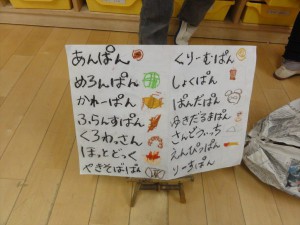 あんぱん
めろんぱん
かれーぱん
ふらんすぱん
くろわっさん
ほっとどっく
やきそばぱん
くりーむぱん
しょくぱん
ぱんだぱん
ゆきだるまぱん
さんどうぃっち
えんぴつぱん
りーすぱん